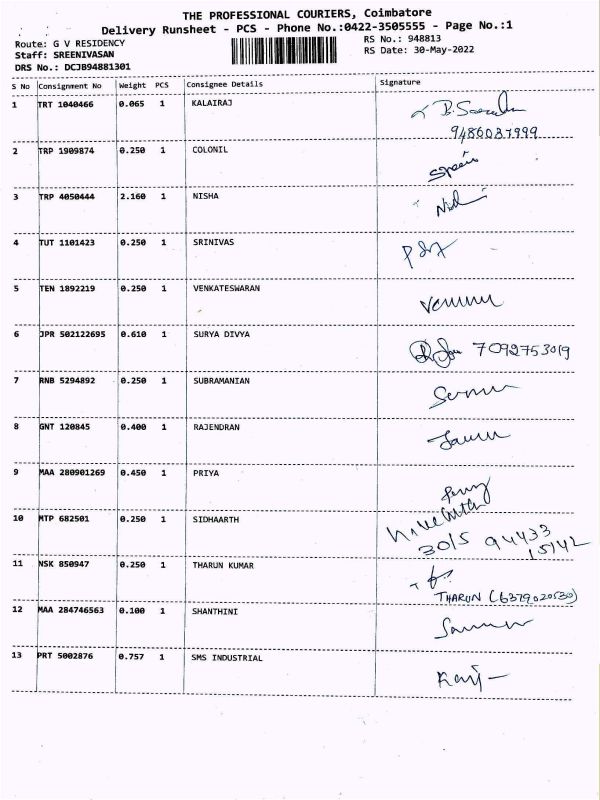 THE PROFESSIONAL COURIERS, Coimbatore
Delivery Runsheet - PCS - Phone No.:0422-3505555 - Page No.:1
Route: G V RESIDENCY RS No.: 948813
Staff: SREENIVASAN RS Date: 30-May-2022
DRS No.: DCJB94881301
S No Consignment No Weight PCS Consignee Details Signature
1 TRT 1040466 0.065 1 KALAIRAJ
9486037999
2 TRP 1909874 0.250 1 COLONIL
3 TRP 4050444 2.160 1 NISHA
4 TUT 1101423 0.250 1 SRINIVAS
5 TEN 1892219 0.250 1 VENKATESWARAN
6 JPR 502122695 0.610 1 SURYA DIVYA 7092753019
7 RNB 5294892 0.250 1 SUBRAMANIAN
8 GNT 120845 0.400 1 RAJENDRAN
9 MAA 280901269 0.450 1 PRIYA
10 MTP 682501 0.250 1 SIDHAARTH
3015 94433
15142
11 NSK 850947 0.250 1 THARUN KUMAR
THARUN (6379020530)
12 MAA 284746563 0.100 1 SHANTHINI
13 PRT 5002876 0.757 1 SMS INDUSTRIAL